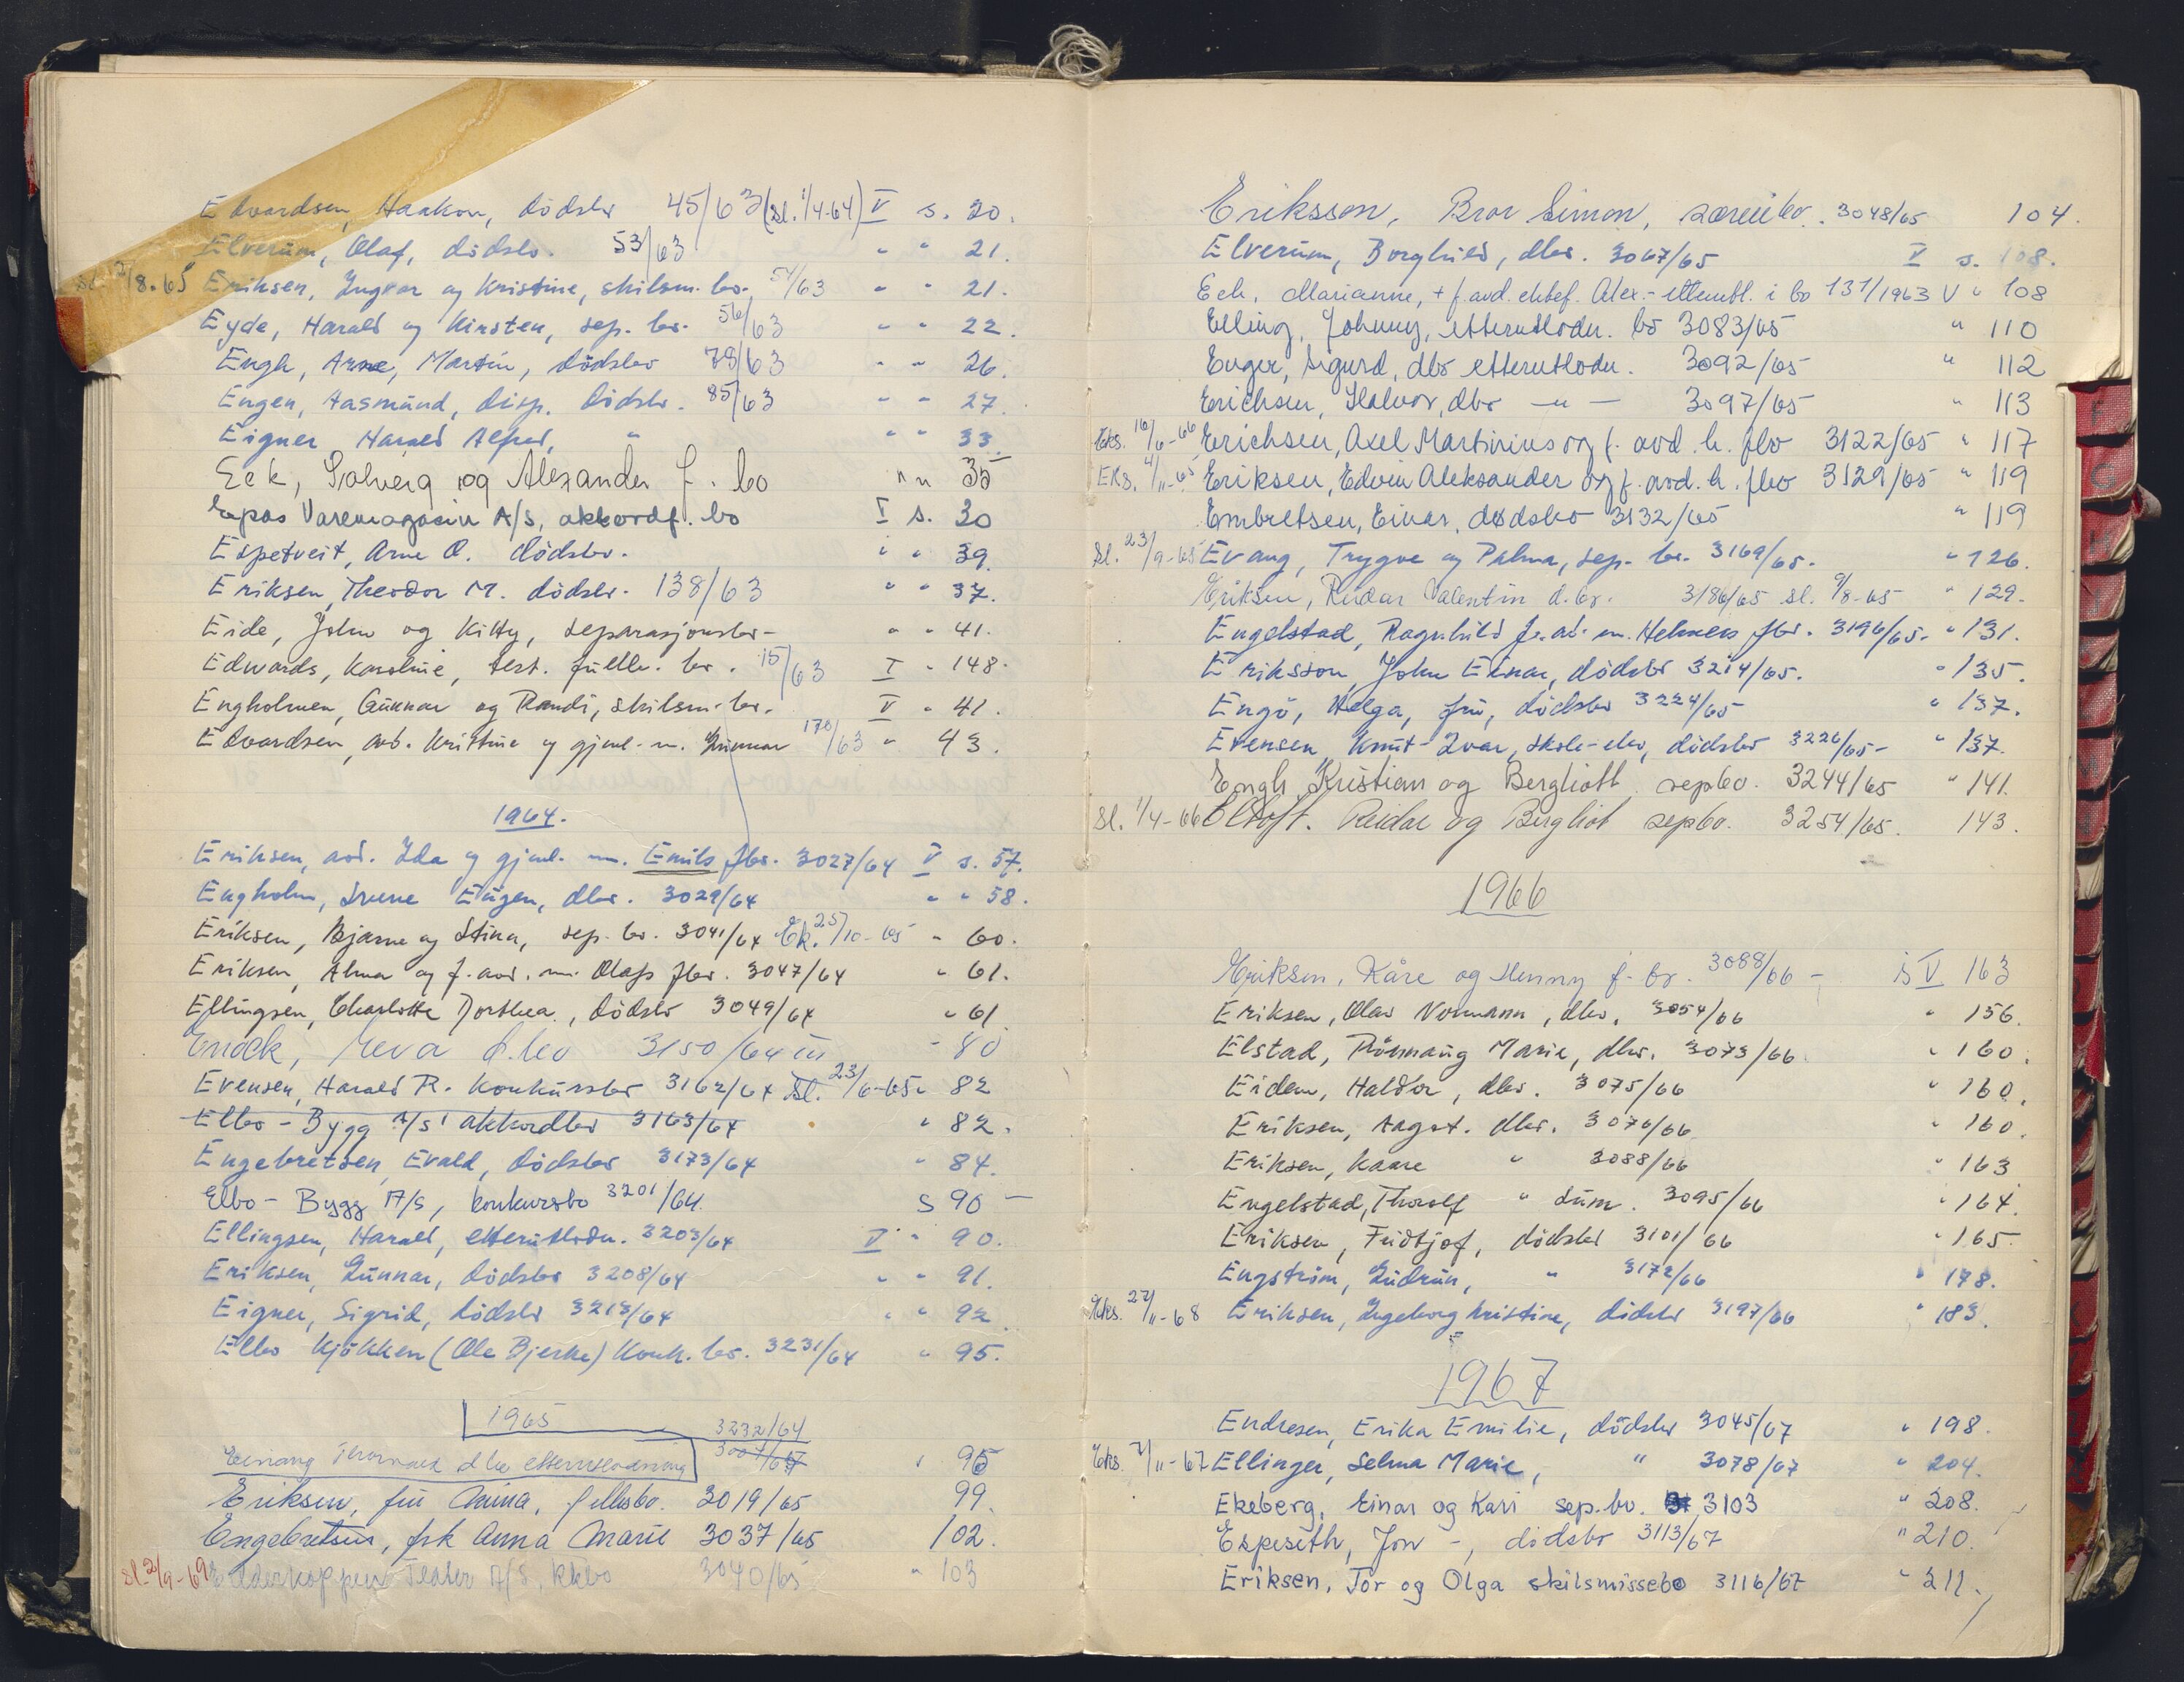 Edvardsen, Haakon, dødsbo 45/63 (sl. 1/4-64) V s. 20.
Elverum, Olaf, dødsbo. 53/63 " " 21.
sl. /8.65 Eriksen, Ingvar og Kristine, skilsm. bo. 54/63 " " 21.
Eyde, Harald og Kirsten, sep. bo. 56/63 " " 22.
Engh, Arne, Martin, dödsbo 78/63 " " 26.
Engen, Aasmund, disp. dödsbo. 85/63 " " 27.
Eigner Harald Alfred, " " " 33
Eek, Solveig og Alexander f. bo " " 35
Epas Varemagasin A/S, akkordf. bo V s. 30
Espetveit, Arne O. dödsbo. " " 39.
Eriksen, Theodor M. dödsbo. 138/63 " " 37.
Eide, John og Kitty, separasjonsbo - " " 41.
Edwards, Karoline, test. fullb. bo. 15/63 I " 148.
Engholmen, Gunnar og Randi, skilsm. bo. V " 41.
Edvardsen, avd. Kristine og gjenl. m. Gunnar 170/63 " 43.
1964.
Eriksen, avd. Ida og gjenl. m. Emils fbo. 3027/64 V s. 57.
Engholm, Sverre Eugen, dbo. 3029/64 " " 58.
Eriksen, Bjarne og Stina, sep. bo. 3041/64 Ek. 25/10-65 " 60.
Eriksen, Alma og f. avd. m. Olafs fbo. 3047/64 " 61.
Ellingsen, Charlotte Dorthea, dödsbo 3049/64 " 61
Enock, Jeva d.bo 3150/64 III " 80
Evensen, Harald R. konkursbo 3162/64 Sl. 23/6-65 " 82
Elbo-Bygg A/S akkordbo 3163/64 " 82.
Engebretsen, Evald, dödsbo 3173/64 " 84.
Elbo-Bygg A/S, konkursbo 3201/64. S 90 -
Ellingsen, Harald, etterutlodn. 3203/64 V " 90.
Eriksen, Gunnar, dödsbo 3208/64 " " 91.
Eigner, Sigrid, dödsbo 3213/64 " " 92
Elbo Kjökken (Ole Bjerke) konk. bo. 3231/64 " 95.
1965
3232/64
Einang Thorvald dbo etterutlodning 3001/64 " 95
Eriksen, fru Anna, fellesbo. 3019/65 99.
Engebretsen, frk Anna Marie 3037/65 102.
sl. 2/9-69 Edderkoppen Teater A/S, kkbo 3040/65 " 103
Eriksson, Bror Simon, særeiebo. 3048/65 104.
Elverum, Borghild, dbo. 3067/65 V s. 108.
Eek, Marianne, + f. avd. ektef. Alex. - etterutl. i bo 137/1963 V " 108
Elling, Johnny, etterutlodn. bo 3083/65 " 110
Enger, Sigurd, dbo etterutlodn. 3092/65 " 112
Erichsen, Halvor, dbo -"- 3097/65 " 113
Eks. 16/6-66 Erichsen, Axel Martinius og f. avd. h. fbo 3122/65 " 117
Eks. 4/11-65 Eriksen, Edvin Aleksander og f. avd. h. fbo 3129/65 " 119
Embretsen, Einar, dødsbo 3132/65 " 119
Sl. 23/9-65 Evang, Trygve og Palma, sep. bo. 3169/65. " 126.
Eriksen, Reidar Valentin d.bo. 3186/65 sl. 9/8-65 " 129.
Engelstad, Ragnhild f. av. m. Helmers fbo. 3196/65. " 131.
Eriksson, John Einar, dödsbo 3214/65. " 135.
Engö, Helga, fru, dödsbo 3224/65 " 137.
Evensen, Knut-Ivar, skole-elev, dödsbo 3226/65 - " 137.
Engh, Kristian og Bergliott sepbo. 3244/65 " 141.
Sl. 1/4-66 Eltoft. Reidar og Bergliot sepbo. 3254/65. 143.
1966
Eriksen, Kåre og Henny f. bo. 3088/66 - is V 163
Eriksen, Olav Normann, dbo. 3054/66 " 156.
Elstad, Rönnaug Marie, dbo. 3073/66 " 160.
Eidem, Haldor, dbo. 3075/66 " 160.
Eriksen, Aagot. dbo. 3076/66 " 160.
Eriksen, Kaare " 3088/66 " 163
Engelstad, Thorolf " sum. 3095/66 " 164.
Eriksen, Fridtjof, dödsbo 3101/66 " 165.
Engström, Gudrun, " 3172/66 " 178.
Eks. 27/11-68 Eriksen, Ingeborg Kristine, dödsbo 3197/66 " 183.
1967
Endresen, Erika Emilie, dödsbo 3045/67 " 198.
Eks. 7/11-67 Ellinger, Selma Marie, " 3078/67 " 204.
Ekeberg, Einar og Kari sep.bo. 3103 " 208.
Espeseth, Jon -, dödsbo 3113/67 " 210.
Eriksen, Tor og Olga skilsmissebo 3116/67 " 211.